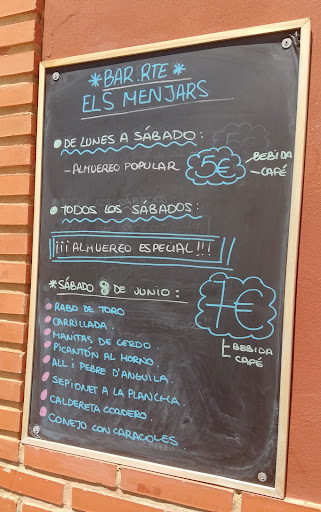 *BAR.RTE*
ELS MENJARS
DE LUNES A SÁBADO:
- ALMUERZO POPULAR 5€ - BEBIDA
- CAFÉ
TODOS LOS SÁBADOS:
¡¡¡ALMUERZO ESPECIAL!!!
*SÁBADO 8 DE JUNIO: 7€
- BEBIDA
CAFÉ
RABO DE TORO
CARRILLADA.
MANITAS DE CERDO.
PICANTÓN AL HORNO.
ALL I PEBRE D'ANGUILA.
SEPIONET A LA PLANCHA
CALDERETA CORDERO.
CONEJO CON CARACOLES.